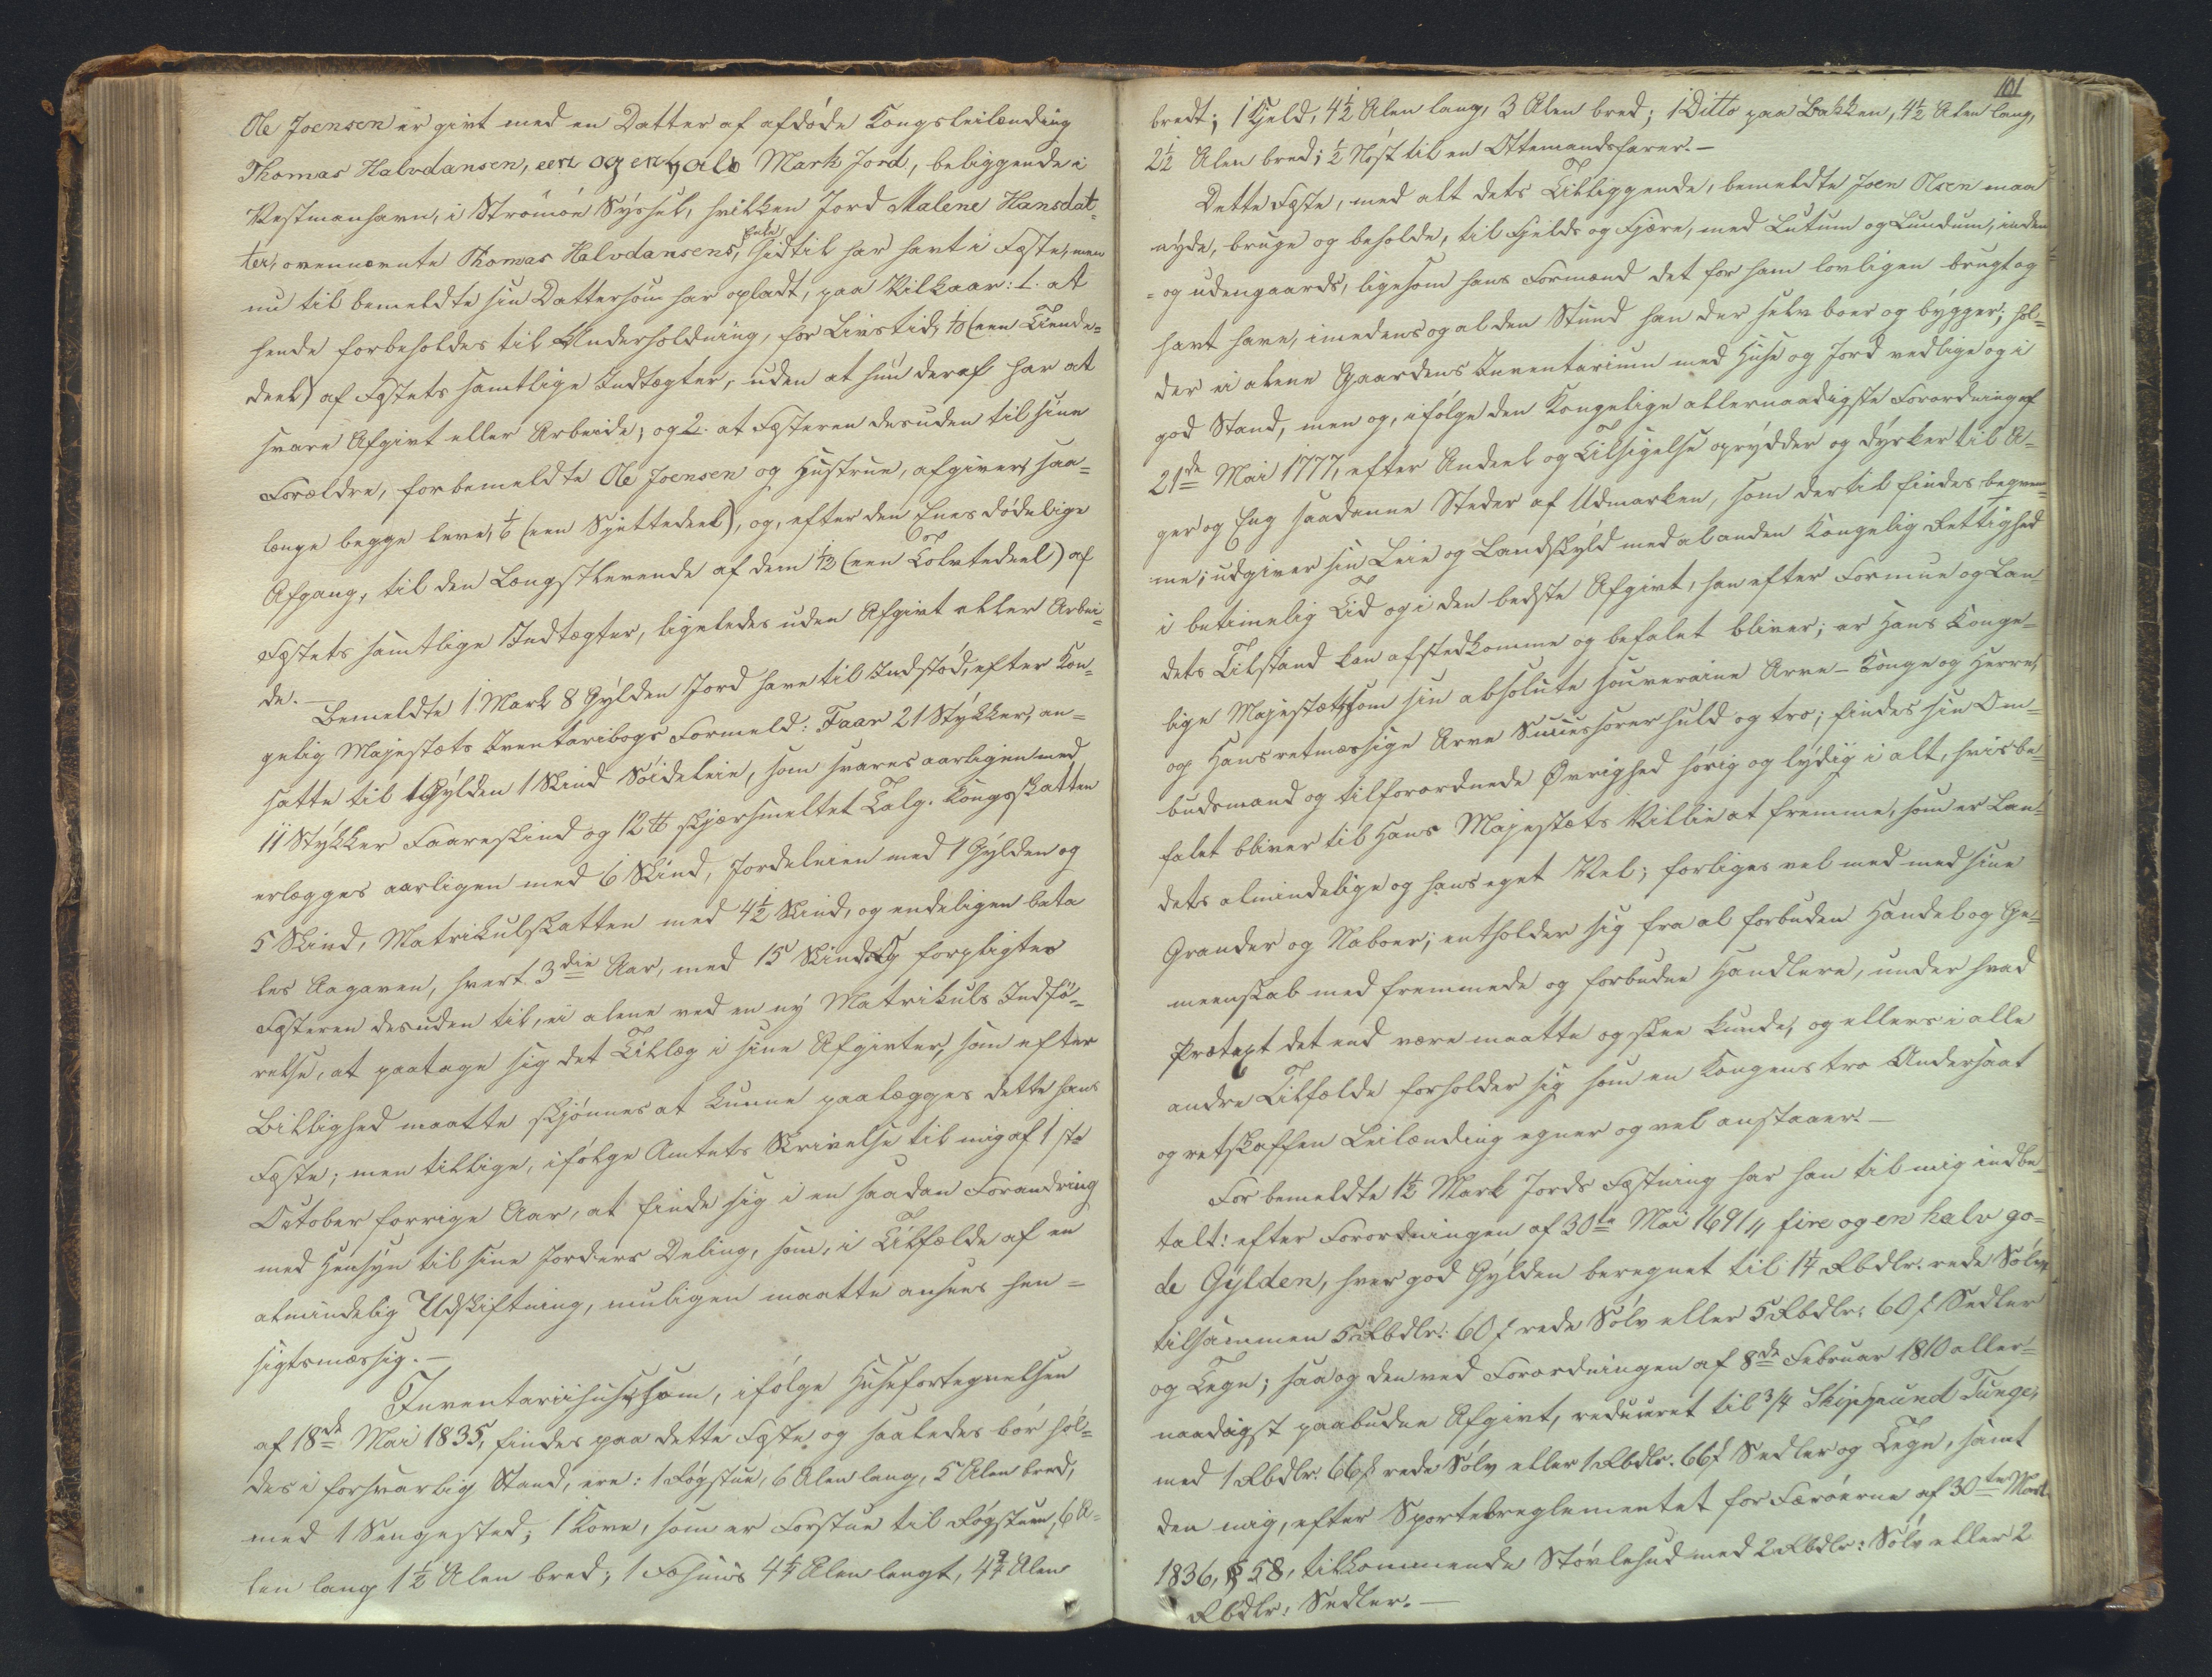 Ole Joensen er givt med en Datter af afdøde Kongsleilænding
Thomas Halvdansen, een og en halv Mark Jord, beliggende i
Vestmanhavn, i Strømøe Syssel, hvilken Jord Malene Hansdat-
ter, ovennævnte Thomas Halvdansens, Enke hidtil har havt i Fæste, men
nu til bemeldte sin Dattersøn har opladt, paa Vilkaar: 1. at
hende forbeholdes til Underholdning, for Livstid, 1/10 (een Tiende-
deel) af Fæstets samtlige Indtægter, uden at hun deraf har at
svare Afgivt eller Arbeide; og 2. at Fæsteren desuden til sine
Forældre, forbemeldte Ole Joensen og Hustrue, afgiver, saa-
længe begge leve, 1/6 (een Sjettedeel), og, efter den Enes dødelige
Afgang, til den Længstlevende af dem 1/12 (een Tolvtedeel) af
Fæstets samtlige Indtægter, ligeledes uden Afgivt eller Arbei-
de.—
Bemeldte 1 Mark 8 Gylden Jord have til Indstød, efter Kon-
gelig Majestæts Iventariibogs Formeld: Faar 21 Stykker, an-
satte til 1 Gylden 1 Skind Söideleie, som svares aarligen med
11 Stykker Faareskind og 12 ℔ skjærsmeltet Talg. Kongsskatten
erlægges aarligen med 6 Skind, Jordeleien med 1 Gylden og
5 Skind, Matrikulskatten med 4½ Skind, og endeligen beta-
les Aagaven, hvert 3die Aar, med 15 Skind. Og forpligtes
Fæsteren desuden til, ei alene ved en ny Matrikuls Indfø-
relse, at paatage sig det Tillæg i sine Afgivter, som efter
Billighed maatte skjønnes at kunne paalægges dette hans
Fæste; men tillige, ifølge Amtets Skrivelse til mig af 1ste
October forrige Aar, at finde sig i en saadan Forandring
med Hensyn til sine Jorders Deling, som, i Tilfælde af en
almindelig Udskiftning, muligen maatte ansees hen-
sigtsmæssig.—
Inventariihuse, som, ifølge Husefortegnelsen
af 18de Mai 1835, findes paa dette Fæste og saaledes bør hol-
des i forsvarlig Stand, ere: 1 Røgstue, 6 Alen lang, 5 Alen bred,
med 1 Sengested; 1 Kove, som er Forstue til Røgstuen, 6 A-
len lang 1½ Alen bred; 1 Fæhuus 4½ Alen langt, 4½ Alen
101
bredt; 1 Hjeld, 4½ Alen lang, 3 Alen bred; 1 Ditto paa Bakken, 4½ Alen lang,
2½ Alen bred; ½ Nøst til en Ottemandsfarer.—
Dette Fæste, med alt dets Tilliggende, bemeldte Joen Olsen maa
nyde, bruge og beholde, til Fjelds og Fjære, med Lutum og Lundum, inden
- og udengaards, ligesom hans Formænd det for ham lovligen brugt og
havt have, imedens og al den Stund han der selv boer og bygger; hol-
der ei alene Gaardens Inventarium med Huse og Jord vedlige og i
god Stand, men og, ifølge den Kongelige allernaadigste Forordning af
21de Mai 1777, efter Andeel og Tilsigelse oprydder og dyrker til A-
ger og Eng saadanne Steder af Udmarken, som dertil findes beqvem-
me; udgiver sin Leie og Landskyld med al anden Kongelig Rettighed
i betimelig Tid og i den bedste Afgivt, han efter Formue og Lan-
dets Tilstand kan afstedkomme og befalet bliver; er Hans Konge-
lige Majestæt, som sin absolute souveraine Arve-Konge og Herre,
og Hans retmæssige Arve Successorer huld og tro; findes sin Om-
budsmand og tilforordnede Øvrighed hørig og lydig i alt, hvis be-
falet bliver til Hans Majestæts Villie at fremme, som er Lan-
dets almindelige og hans eget Vel; forliges vel med med sine
Grander og Naboer; entholder sig fra al forbuden Handel og Ge-
meenskab med fremmede og forbudne Handlere, under hvad
Prætext det end være maatte og skee kunde, og ellers i alle
andre Tilfælde forholder sig som en Kongens tro Undersaat
og retskaffen Leilænding egner og vel anstaaer.—
For bemeldte 1½ Mark Jords Fæstning har han til mig indbe-
talt: efter Forordningen af 30te Mai 1691, fire og en halv go-
de Gylden, hver god Gylden beregnet til 1¼ Rbdlr. rede Sølv,
tilsammen 5 Rbdlr. 60 ß rede Sølv eller 5 Rbdlr. 60 ß Sedler
og Tegn; saa og den ved Forordningen af 8de Februar 1810 aller-
naadigst paabudne Afgivt, reduceret til 3/4 Skippund Tunge,
med 1 Rbdlr. 66 ß rede Sølv eller 1 Rbdlr. 66 ß Sedler og Tegn, samt
den mig, efter Sportelreglementet for Færøerne af 30te Marts
1836, § 58, tilkommende Støvlehud med 2 Rbdlr: Sølv eller 2
Rbdlr: Sedler.—